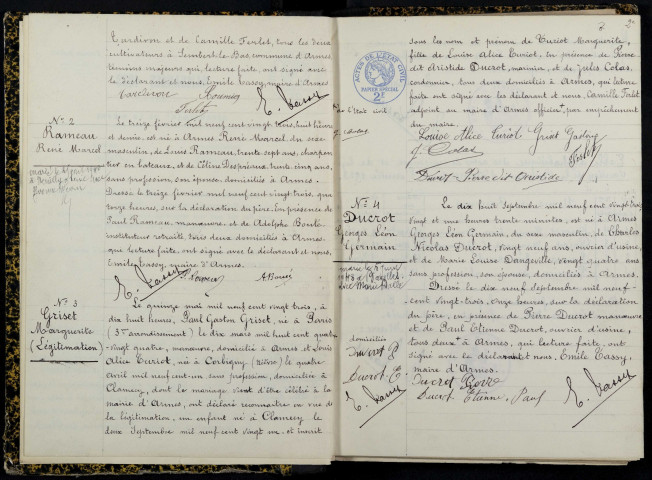 Tardivon et de Camille Ferlet, tous les deux
cultivateurs à Sembert-le-Bas, commune d'Armes
témoins majeurs qui, lecture faite, ont signé avec
le déclarant et nous, Emile Tassy, maire d'Armes
Tardivon
E. Tassy
N° 2
Rameau
René Marcel
Le treize février mil neuf cent vingt trois, huit heures
et demie, est né à Armes René Marcel, du sexe
masculin, de Louis Rameau, trente sept ans, charpen-
tier en bateaux, et de Céline Desprieux, trente cinq ans,
sans profession, son épouse, domiciliés à Armes.
Dressé le treize février mil neuf cent vingt trois, qua-
torze heures, sur la déclaration du père. En présence de
Paul Rameau, manœuvre, et de Adolphe
instituteur retraité, tous deux domiciliés à Armes,
qui, lecture faite, ont signé avec le déclarant et nous,
Emile Tassy, maire d'Armes.
E. Tassy Rameau
N° 3
Griset
Marguerite
(Légitimation)
Le quinze mai mil neuf cent vingt trois, à
dix huit heures, Paul Gaston Griset, né à Paris
(3me arrondissement) le dix mars mil huit cent quatre
vingt quatre, manœuvre, domicilié à Armes et Louise
Alice Turiot, née à Corbigny (Nièvre) le quatre
Avril mil neuf cent un sans profession, domiciliée à
Clamecy, dont le mariage vient d'être célébré à la
mairie d'Armes, ont déclaré reconnaître en vue de
la légitimation, un enfant né à Clamecy le
deux Septembre mil neuf cent vingt un et inscrit
sous les nom et prénom de Turiot Marguerite,
fille de Louise Alice Turiot. En présence de Pierre
dit Aristide Ducrot, marinier, et de Jules Colas,
cordonnier, tous deux domiciliés à Armes, qui, lecture
faite ont signé avec les déclarants et nous, Camille Ferlet
adjoint au maire d'Armes officiant par empêchement
du maire.
Louise Alice Turiot Griset Gaston
J. Colas Ferlet
Ducrot Pierre dit Aristide
ACTES DE L'ETAT CIVIL
PAPIER SPECIAL
2F
N° 4
Ducrot
Georges Léon
Germain
Le dix huit Septembre mil neuf cent vingt trois
vingt et une heures trente minutes, est né à Armes
Georges Léon Germain, du sexe masculin, de Charles
Nicolas Ducrot, vingt neuf ans, ouvrier d'usine,
et de Marie Louise Dangeville, vingt quatre ans
sans profession, son épouse, domiciliés à Armes.
Dressé le dix neuf septembre mil neuf
cent vingt-trois, onze heures, sur la déclaration
du père, en présence de Pierre Ducrot manœuvre
et de Paul Etienne Ducrot, ouvrier d'usine,
tous deux à Armes, qui, lecture faite, ont
signé avec le déclarant et nous, Emile Tassy,
maire d'Armes.
domiciliés
Ducrot P
Ducrot E.
E. Tassy
Ducrot Pierre
Ducrot Etienne, Paul
E. Tassy